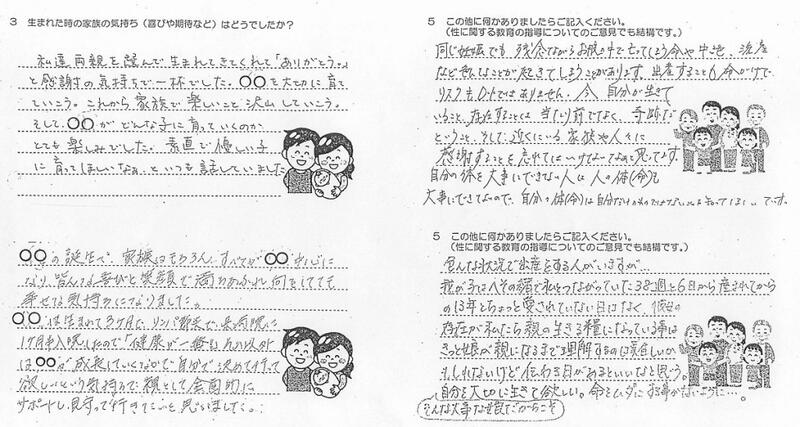 3 生まれた時の家族の気持ち(喜びや期待など)はどうでしたか?
私達両親を選んで生まれてきてくれて「ありがとう。」
と感謝の気持ちで一杯でした。○○を大切に育て
ていこう。これから家族で楽しいこと沢山していこう。
そして○○がどんな子に育っていくのか
とても楽しみでした。素直で優しい子
に育ってほしいなぁ、といつも話していました
○○の誕生で、家族はもちろん、すべてが○○
なり皆んなも喜びと笑顔で満ちあふれ何をしてても
幸せな気持ちになりました。
○○は生まれて3ヶ月た
1ヶ月半入院したので「健康が一番
は○○が成長していくなかで自分で決めて行って
欲しいという気持ちで親として全面的に
サポートし見守って行きたいと思いました。
5 この他に何かありましたらご記入ください。
(性に関する教育の指導についてのご意見でも結構です。)
同じ妊娠でも残念ながらお腹の中で亡ってしまう命や中絶、流産
など悲しいことが起きてしまうことがあります。出産することも命がけで
リスクも0ではありません。今、自分が生きて
いること、存在することは当たり前でなく、奇跡だ
ということ、そして近くにいる家族や人々に
感謝することを忘れてはいけないなあと思ってます。
自分の体を大事にできない人は人の体(命)も
大事にできないので、自分の体(命)は自分だけのものではないことを知ってほしいです。
5 この他に何かありましたらご記入ください。
(性に関する教育の指導についてのご意見でも結構です。)
色んな状況で出産をする人がいますが…
我が子はへその緒で私とつながっていた38週と6日から産まれてから
の13年とちょっと愛されていない日はなく、彼女の
存在が私たち親の生きる糧になっている事は
きっと娘が親になるまで理解するのは難しいか
もしれないけど伝わる日があるといいなと思う。
自分を大切に生きて欲しい。命をムダにする事がないように…。
そんな大事な娘だからこそ